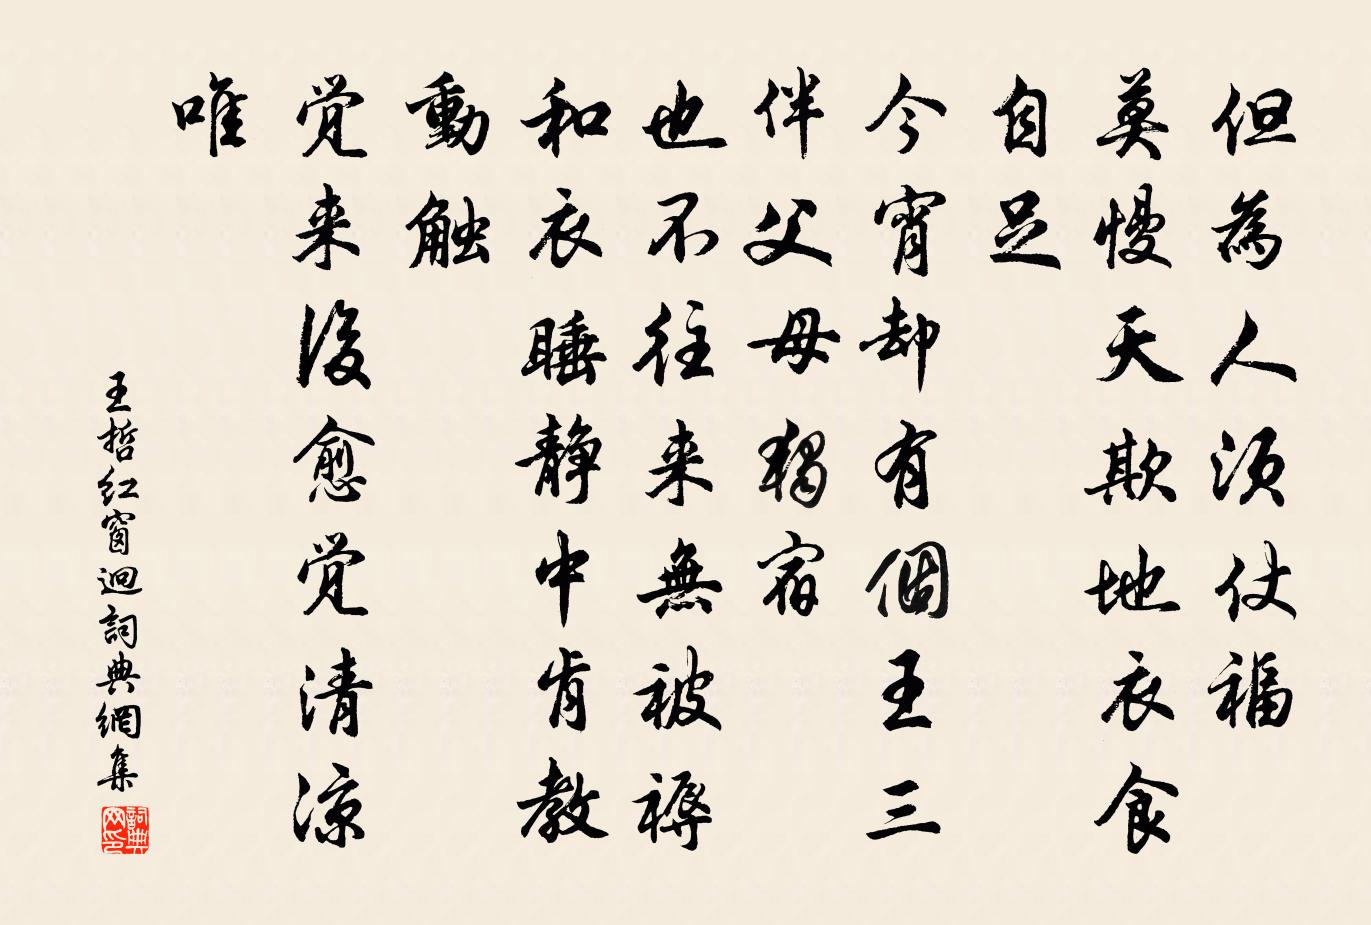 但為人須仗福
莫慢天欺地衣食
自足
今宵却有個王三
伴父母獨宿
也不往来無被褥
和衣睡静中肯教
動触
覚来後愈覚清凉
唯
王哲红窗迥詞典網集
詞典网印